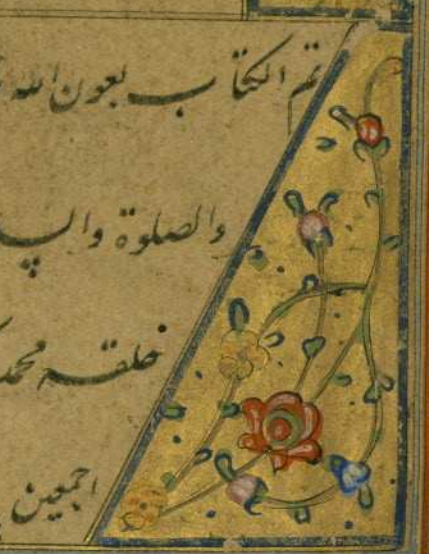 تم الکتاب بعون الله
والصلوة والسـ
خلقه محمد
اجمعین